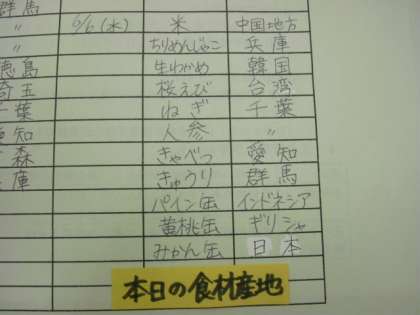 群馬
〃 6/6(水) 米 中国地方
〃 ちりめんじゃこ 兵庫
徳島 生わかめ 韓国
埼玉 桜えび 台湾
千葉 ねぎ 千葉
愛知 人参 〃
森 きゃべつ 愛知
庫 きゅうり 群馬
パイン缶 インドネシア
黄桃缶 ギリシャ
みかん缶 日本
本日の食材産地